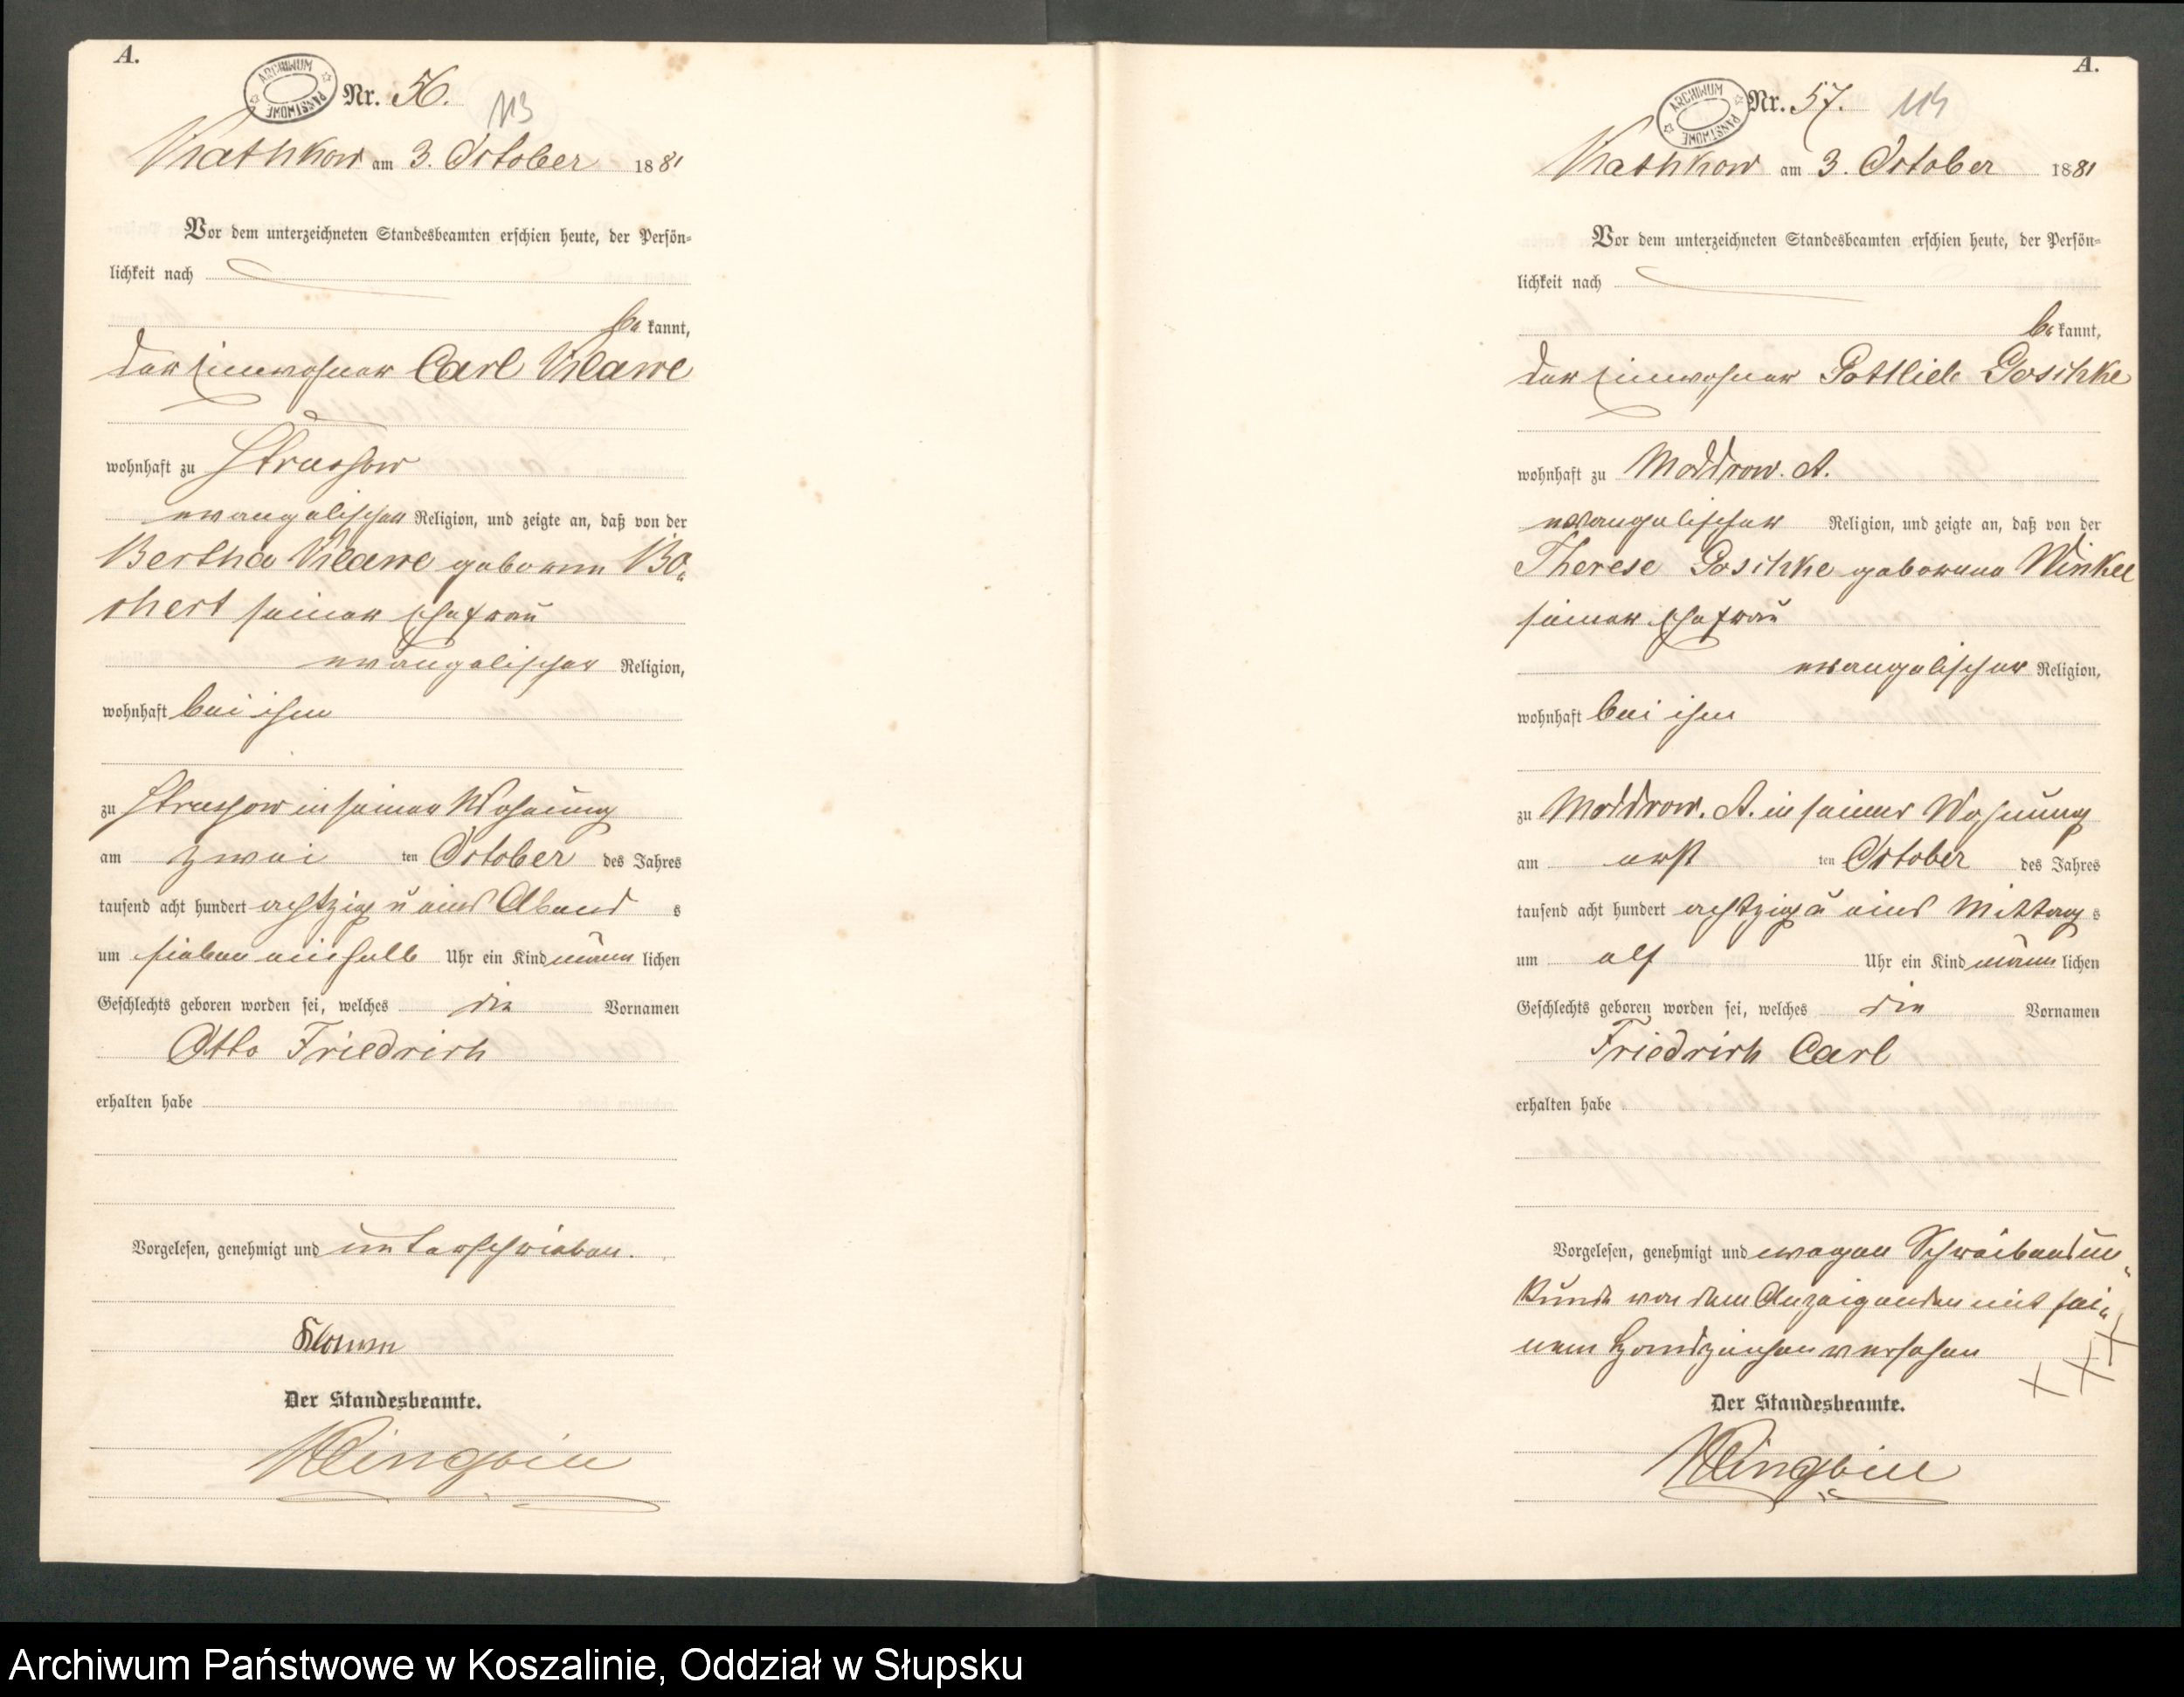 A.
ARCHIWUM PAŃSTWOWE
Nr. 56.
113
am 3. October 1881
Vor dem unterzeichneten Standesbeamten erschien heute, der Persön-
lichkeit nach
be kannt,
der Einwohner Carl Klawe
wohnhaft zu Strussow
evangelischer Religion, und zeigte an, daß von der
Bertha Klawe geborene Bo-
chert seiner Ehefrau
evangelischer Religion,
wohnhaft bei ihm
zu Strussow in seiner Wohnung
am zwei ten October des Jahres
tausend acht hundert achtzig u eins Abend s
um sieben einhalb Uhr ein Kind männ lichen
Geschlechts geboren worden sei, welches die Vornamen
Otto Friedrich
erhalten habe
Vorgelesen, genehmigt und unterschrieben.
Der Standesbeamte.
A.
ARCHIWUM PAŃSTWOWE
Nr. 57.
114
am 3. October 1881
Vor dem unterzeichneten Standesbeamten erschien heute, der Persön-
lichkeit nach
be kannt,
der Einwohner Gottlieb Goschke
wohnhaft zu Moddrow. A.
evangelischer Religion, und zeigte an, daß von der
Therese Goschke geborene Winkel
seiner Ehefrau
evangelischer Religion,
wohnhaft bei ihm
zu Moddrow. A. in seiner Wohnung
am erst ten October des Jahres
tausend acht hundert achtzig u eins Mittag s
um elf Uhr ein Kind männ lichen
Geschlechts geboren worden sei, welches die Vornamen
Friedrich Carl
erhalten habe
Vorgelesen, genehmigt und wegen Schreibensun-
kunde von dem Anzeigenden mit sei-
nem Handzeichen versehen
+ + +
Der Standesbeamte.
Archiwum Państwowe w Koszalinie, Oddział w Słupsku